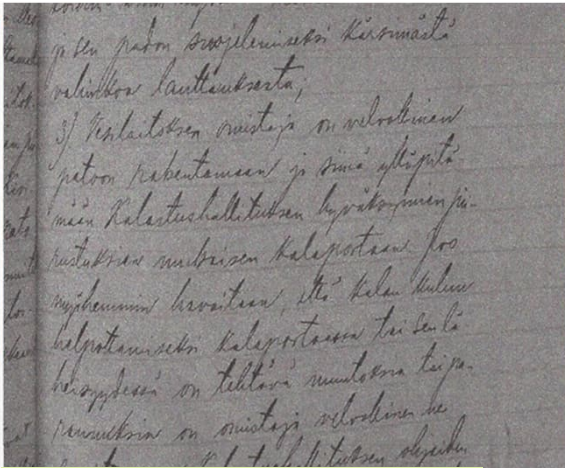 ja sen padon suojelemiseksi kärsimästä
vahinkoa lauttauksesta,
3) Vesilaitoksen omistaja on velvollinen
patoon rakentamaan ja siinä ylläpitä-
mään Kalastushallituksen hyväksymien pii-
rustuksien mukaisen kalaportaan. Jos
myöhemmin havaitaan, että kalan kulun
helpottamiseksi kalaportaassa tai sen lä-
heisyydessä on tehtävä muutoksia tai pa-
rannuksia on omistaja velvollinen ne
Kalastushallituksen ohjeiden